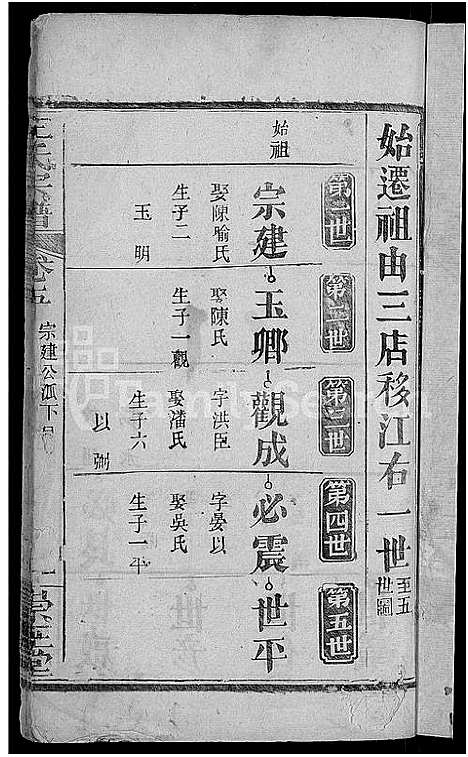 始遷祖由三店移江右一世至五世圖
第一世
第二世
第三世
第四世
第五世
始祖
宗建
玉卿
觀成
必震
世平
娶陳喻氏
生子二
玉明
娶陳氏
生子一觀
字洪臣
娶潘氏
生子六
以弼
字晏以
娶吳氏
生子一平
王氏宗譜
卷之五
宗建公派下
FamilySearch